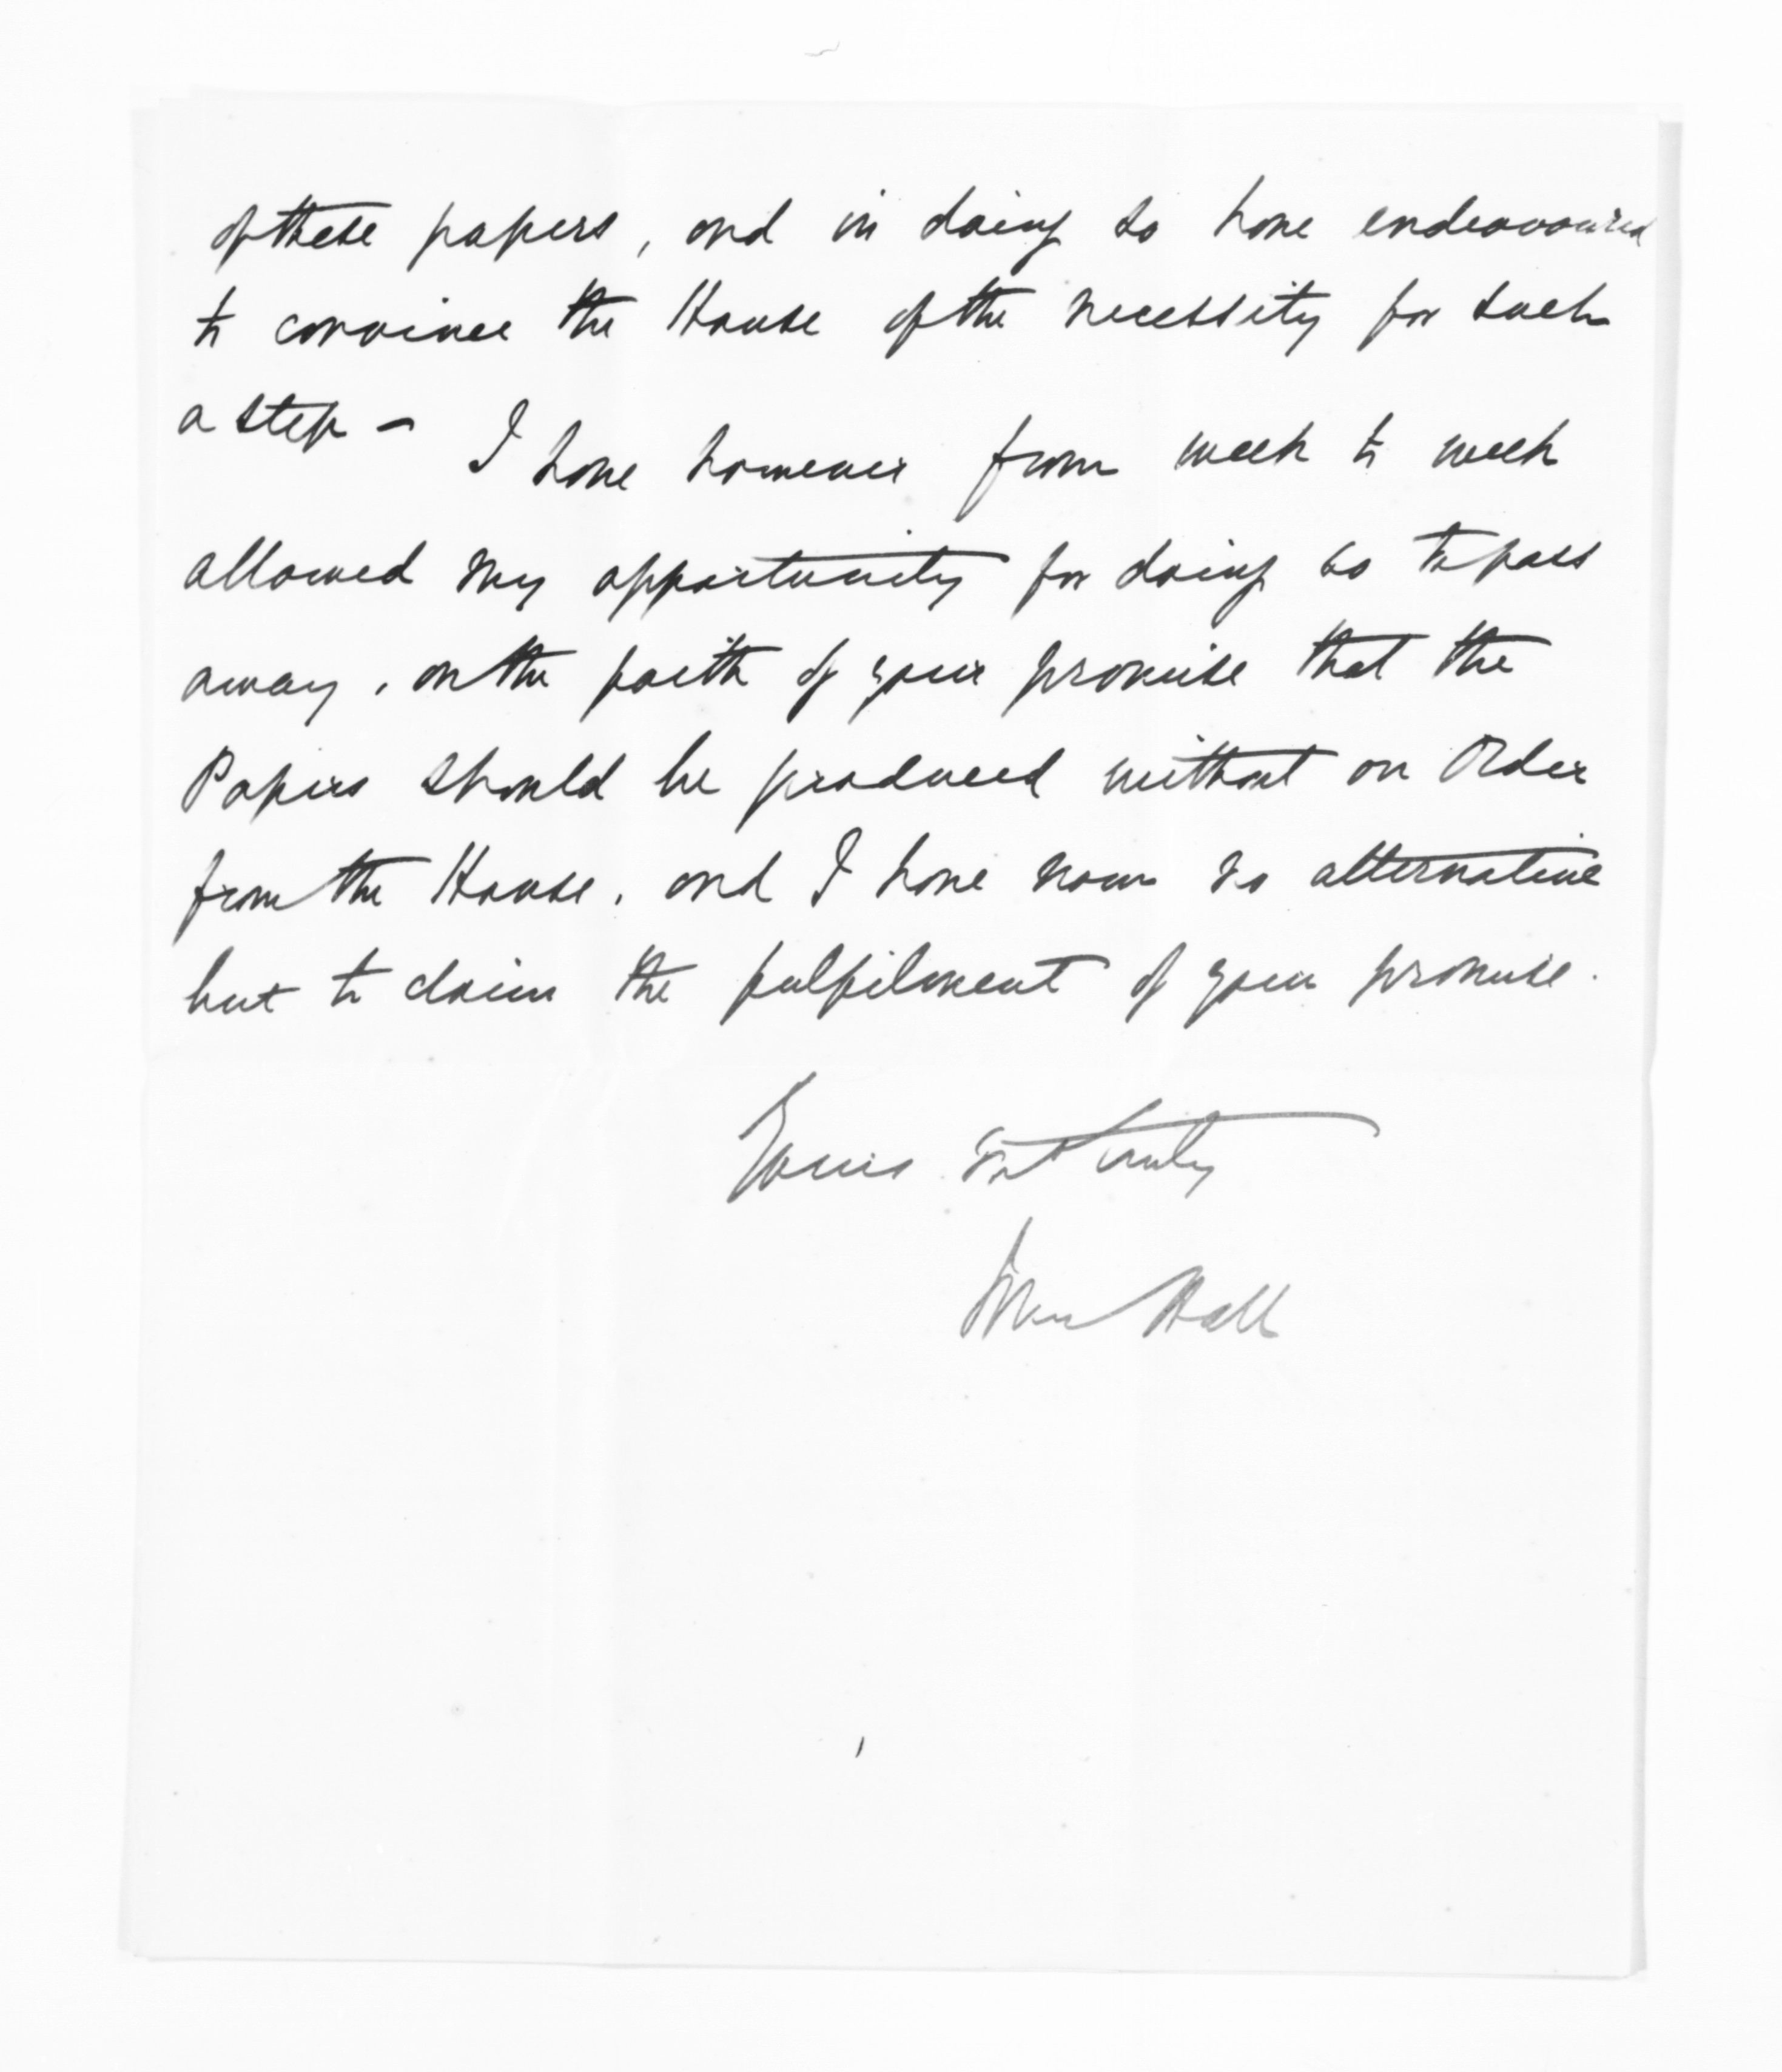 of these papers, and in doing so have endeavoured
to convince the House of the necessity for such
a step - I have however from week to week
allowed my opportunity for doing so to pass
away, on the faith of your promise that the
Papers should be produced without an Order
from the House, and I have now no alternative
but to claim the fulfilment of your promise.
Yours truly
Hall